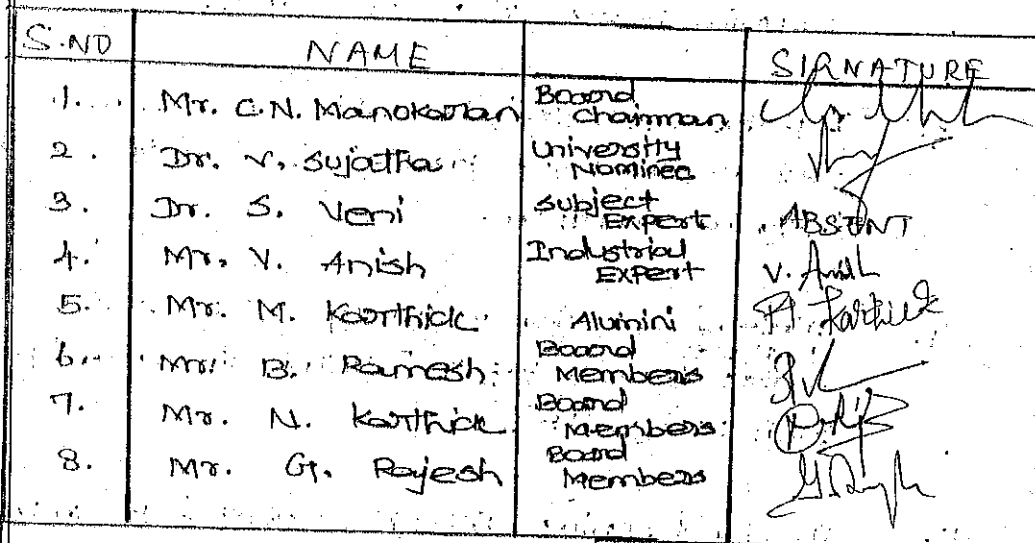 S.NO NAME SIGNATURE
1. Mr. C.N. Manokaran Board Chairman
2. Dr. V. Sujatha University Nominee
3. Dr. S. Veni Subject Expert ABSENT
4. Mr. V. Anish Industrial Expert V. Anish
5. Mr. M. Karthick Alumini M. Karthick
6. Mr. B. Ramesh Board Members
7. Mr. N. Karthick Board Members
8. Mr. G. Rajesh Board Members